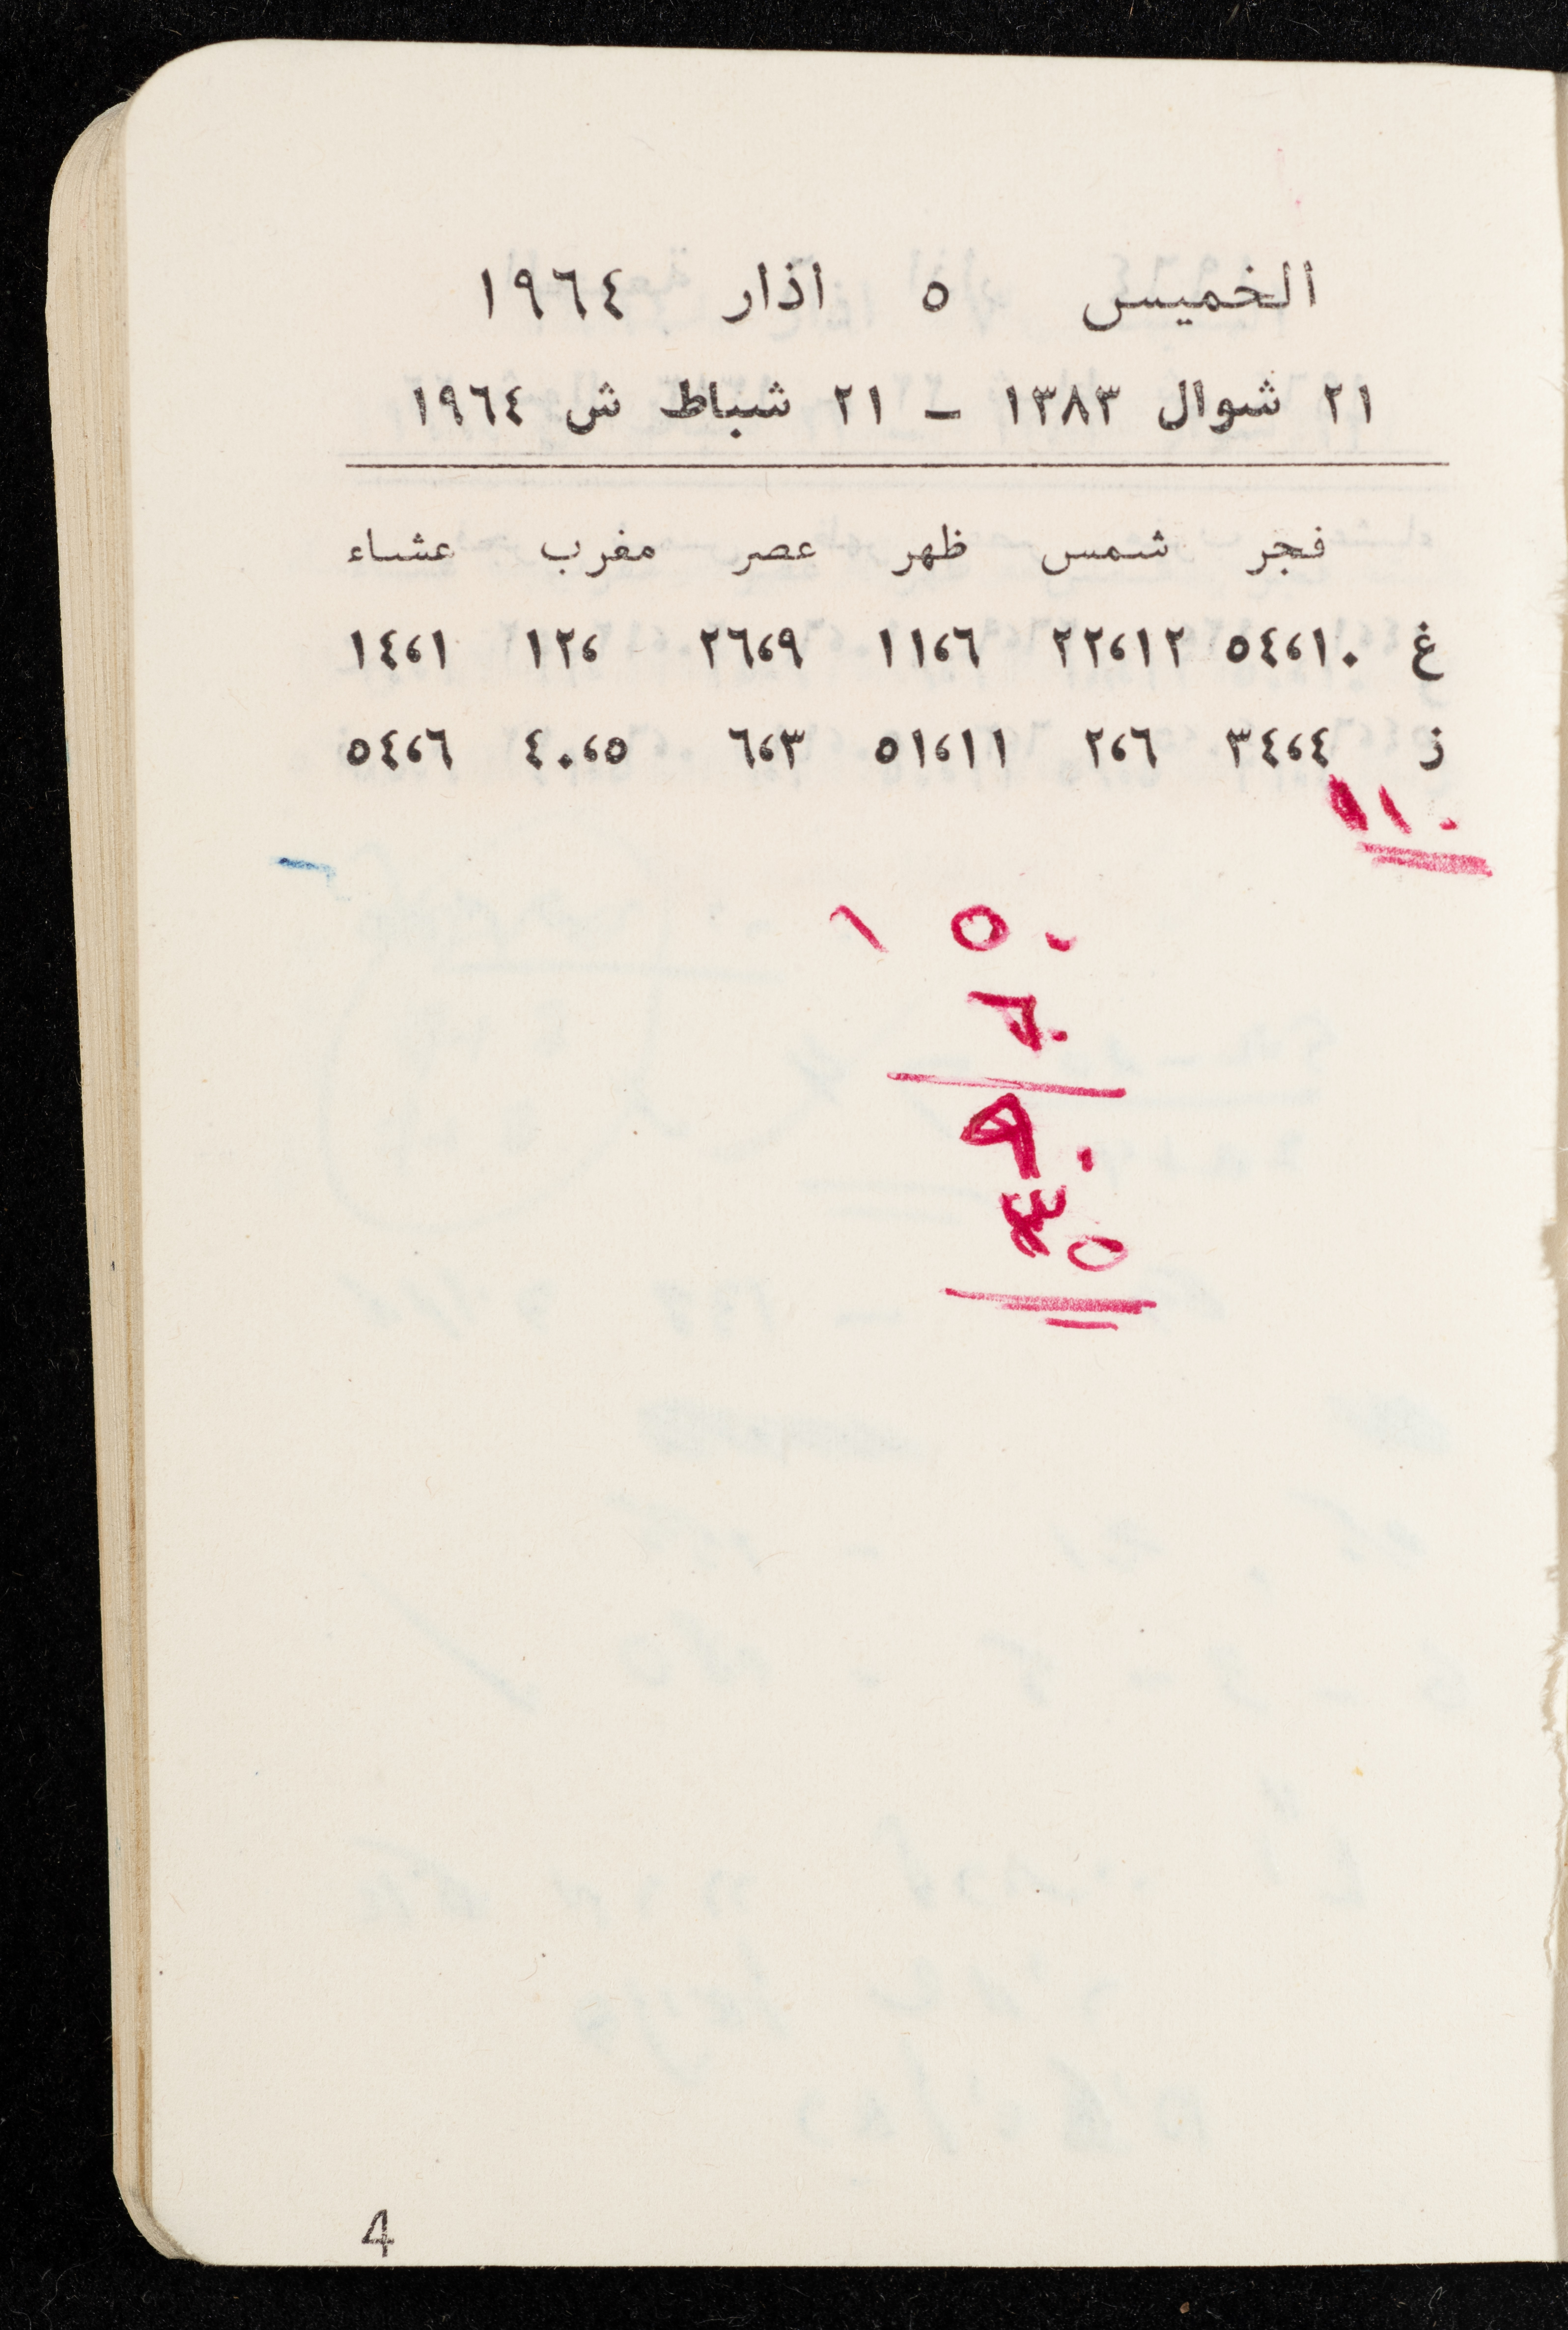 الخميس ٥ اذار ١٩٦٤
٢١ شوال ١٣٨٣ – ٢١ شباط ش ١٩٦٤
فجر شمس ظهر عصر مغرب عشاء
غ ٥٤،١٠ ٢٢،١٢ ١١،٦ ٢٦،٩ ١٢، ١٤،١
ز ٣٤،٤ ٢،٦ ٥١،١١ ٦،٣ ٤٠،٥ ٥٤،٦
١١٠
١ ٥٠
٩٠
٣٥
4